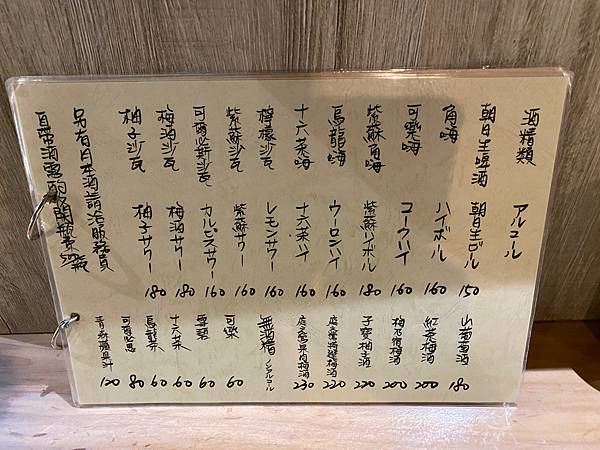 酒精類 アルコール
朝日生啤酒 朝日生ビール 150
角嗨 ハイボール 160
可樂嗨 コークハイ 160
紫蘇角嗨 紫蘇ハイボール 180
烏龍嗨 ウーロンハイ 160
十六茶嗨 十六茶ハイ 160
檸檬沙瓦 レモンサワー 160
紫蘇沙瓦 紫蘇サワー 160
可爾必斯沙瓦 カルピスサワー 160
梅酒沙瓦 梅酒サワー 180
柚子沙瓦 柚子サワー 180
另有日本酒請洽服務員
自帶酒需酌收開瓶費
山葡萄酒 180
紅茶梅酒 200
梅乃宿梅酒 200
子寶柚子酒 220
庭之鶯特選梅酒 220
庭之鶯果肉梅酒 230
無酒精 ノンアルコール
可樂 60
雪碧 60
十六茶 60
烏龍茶 60
可爾必思 80
青森蘋果汁 120